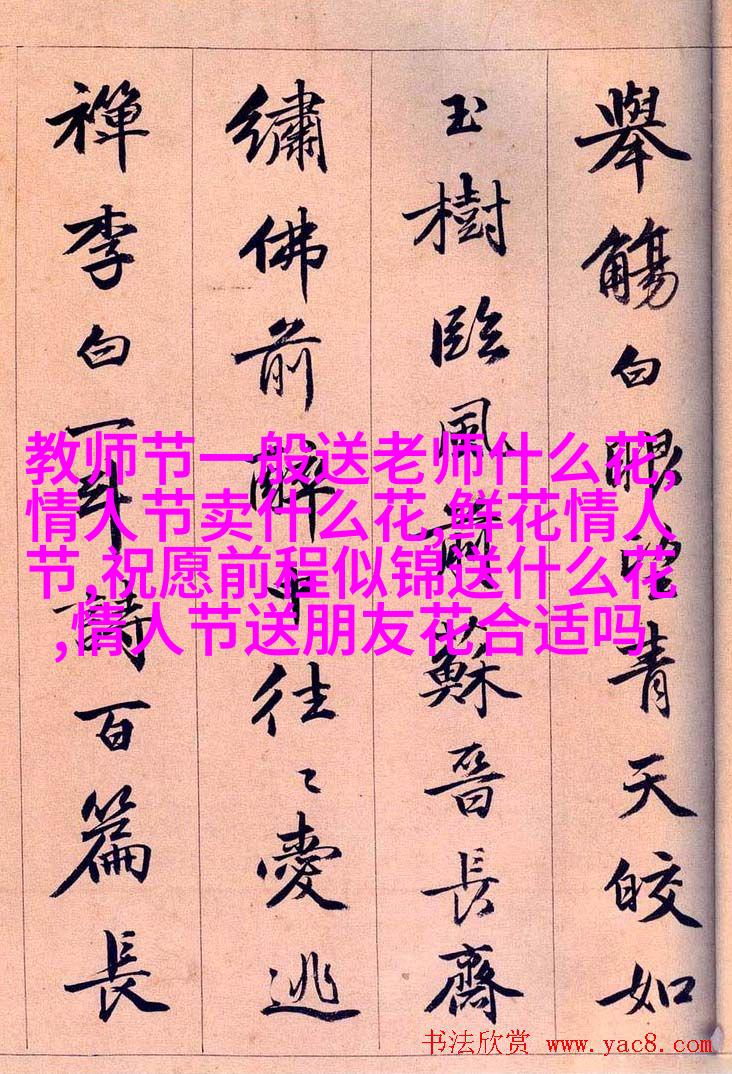 舉觴白眼望青天皎如
玉樹臨風前蘇晉長齋
繡佛前醉中往〻愛逃
禪李白一斗詩百篇長
教师节一般送老师什么花,
情人节卖什么花,鲜花情人
节,祝愿前程似锦送什么花
,情人节送朋友花合适吗
书法欣赏 www.yac8.com